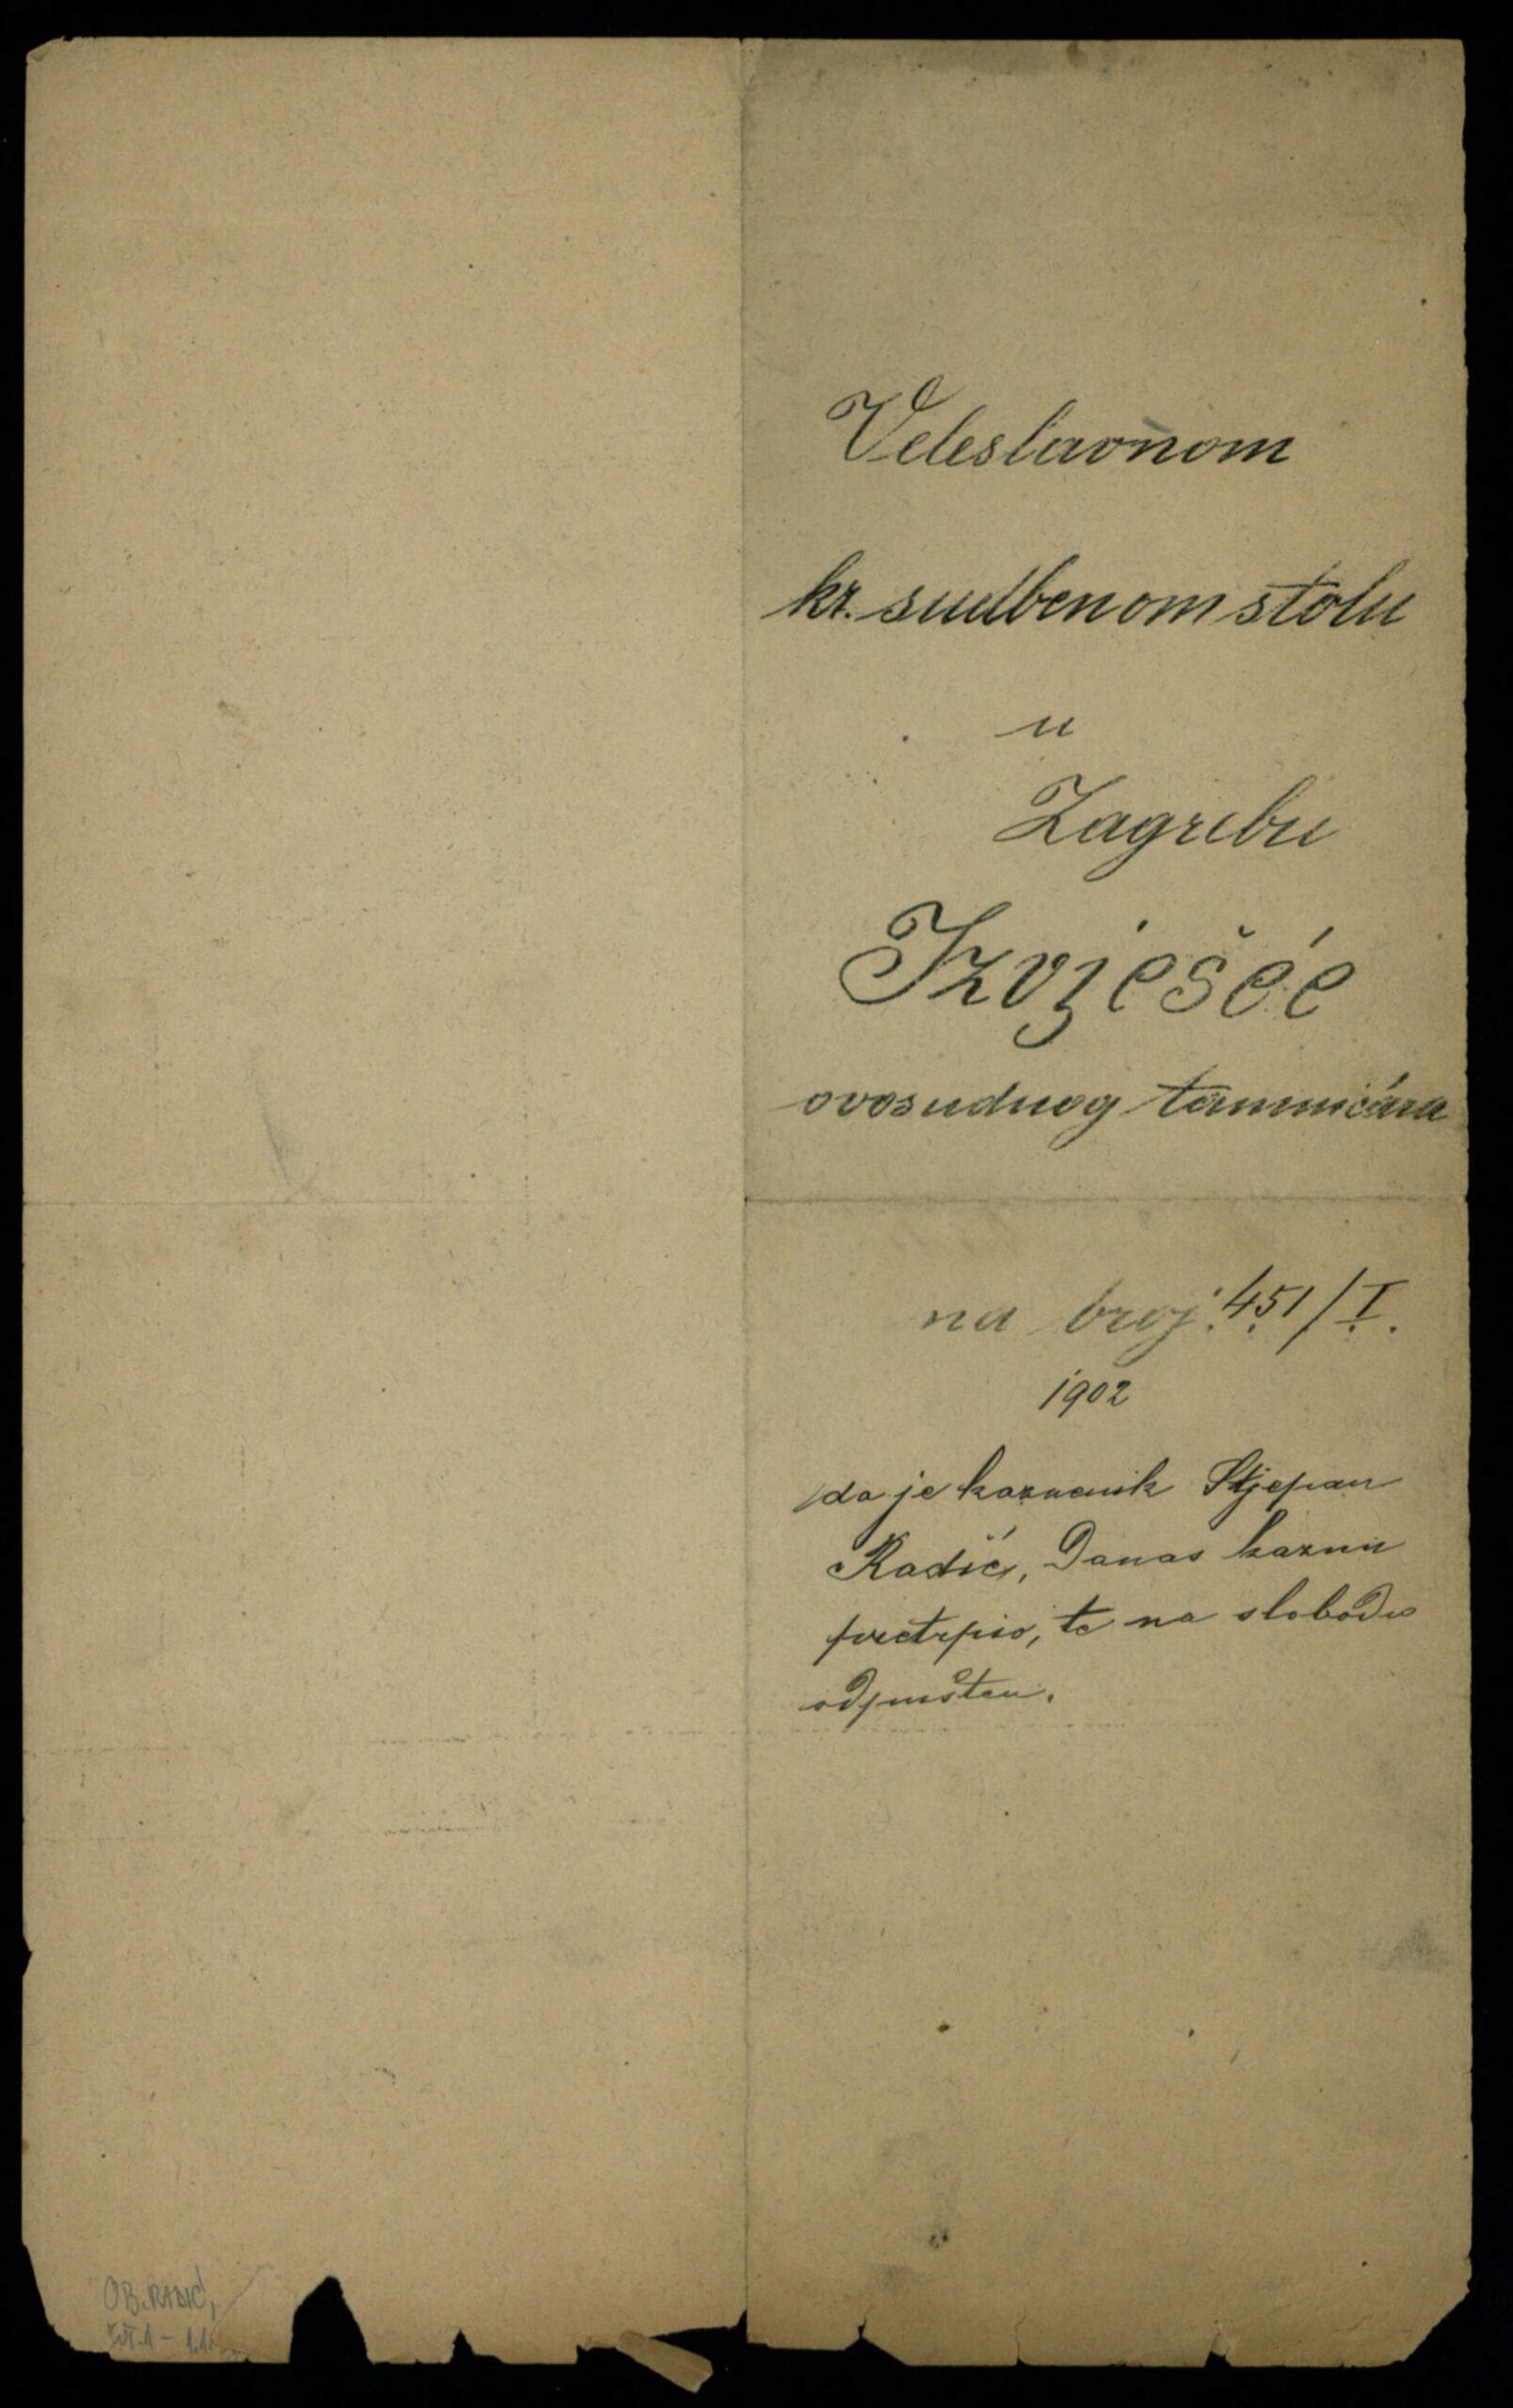 Veleslavnom
kr. sudbenom stolu
u
Zagrebu
Izvješće
ovosudnog tamničara
na broj: 451/I.
1902
da je kaznenik Stjepan
Radić, danas kaznu
pretrpio, te na slobodu
odpušten.
OB. RADIĆ,
KUT. 1 - 1.1.